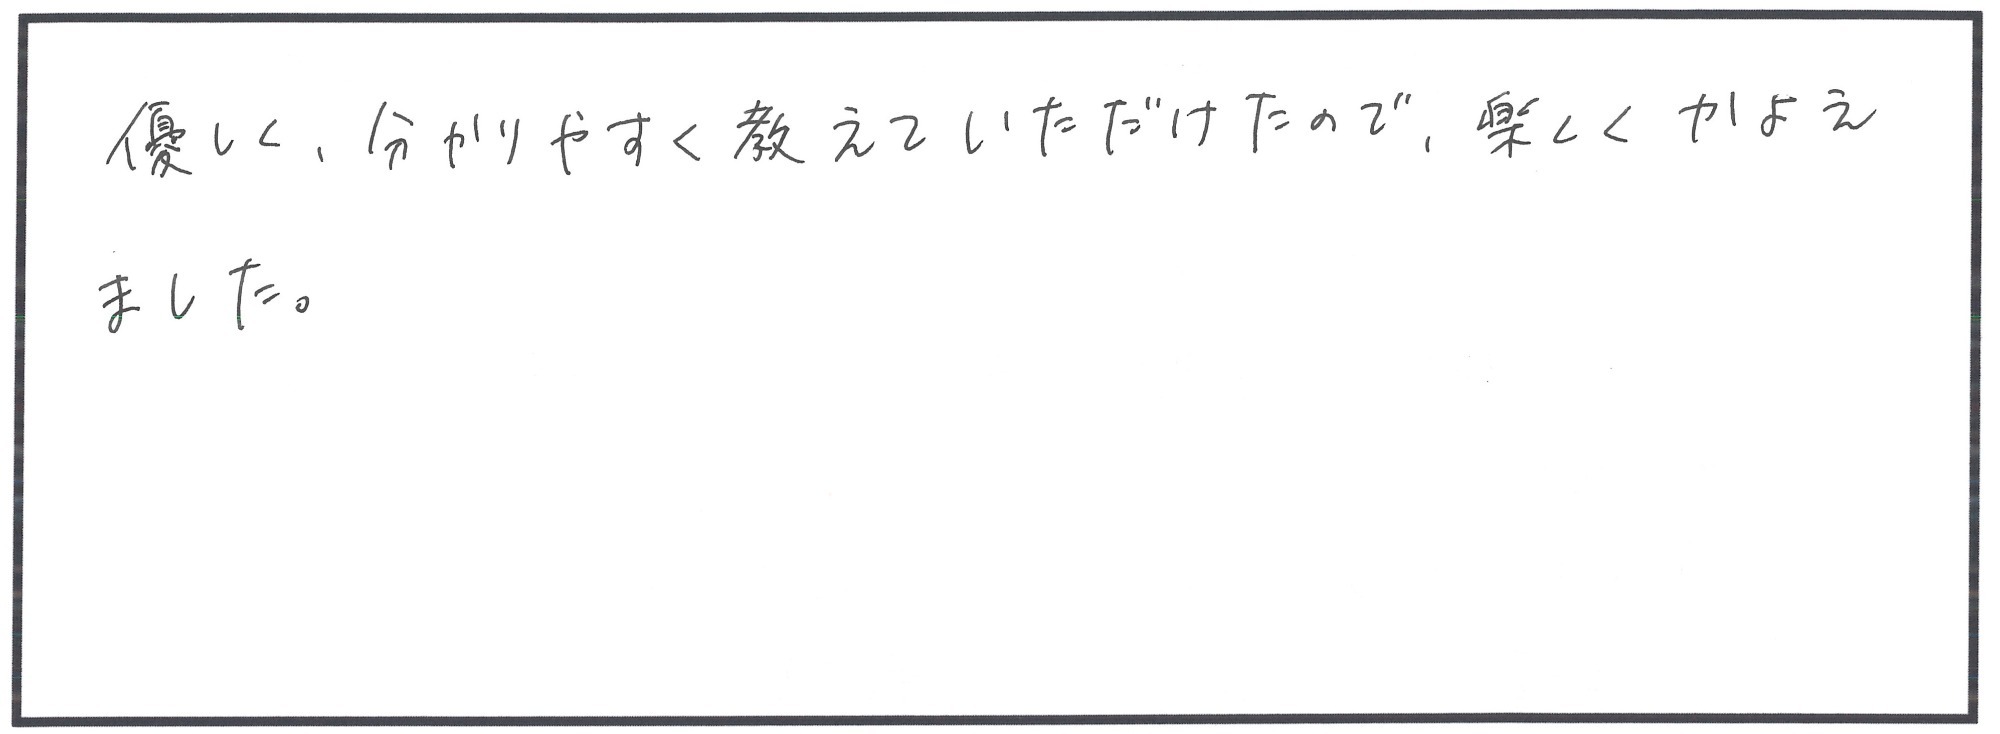 優しく、分かりやすく教えていただけたので、楽しくかよえ
ました。